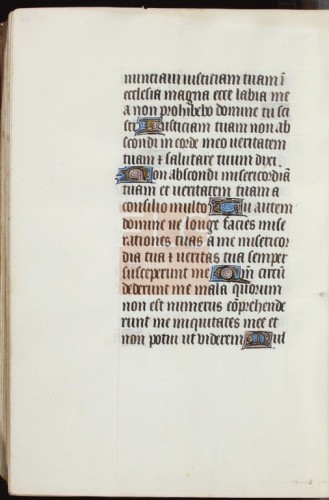 nunciavi iusticiam tuam ī
ecclesia magna ecce labia me
a non prohibebo domine tu sci
sti Iusticiam tuam non ab
scondi in corde meo veritatem
tuam & salutare tuum dixi.
Non abscondi misericordiā
tuam et veritatem tuam a
consilio multo Tu autem
domine ne longe facies mise
rationes tuas a me misericor
dia tua & veritas tua semper
susceperunt me Qm̄ circū
dederunt me mala quorum
non est numerus cōprehende
runt me iniquitates mee et
non potui ut viderem Mul